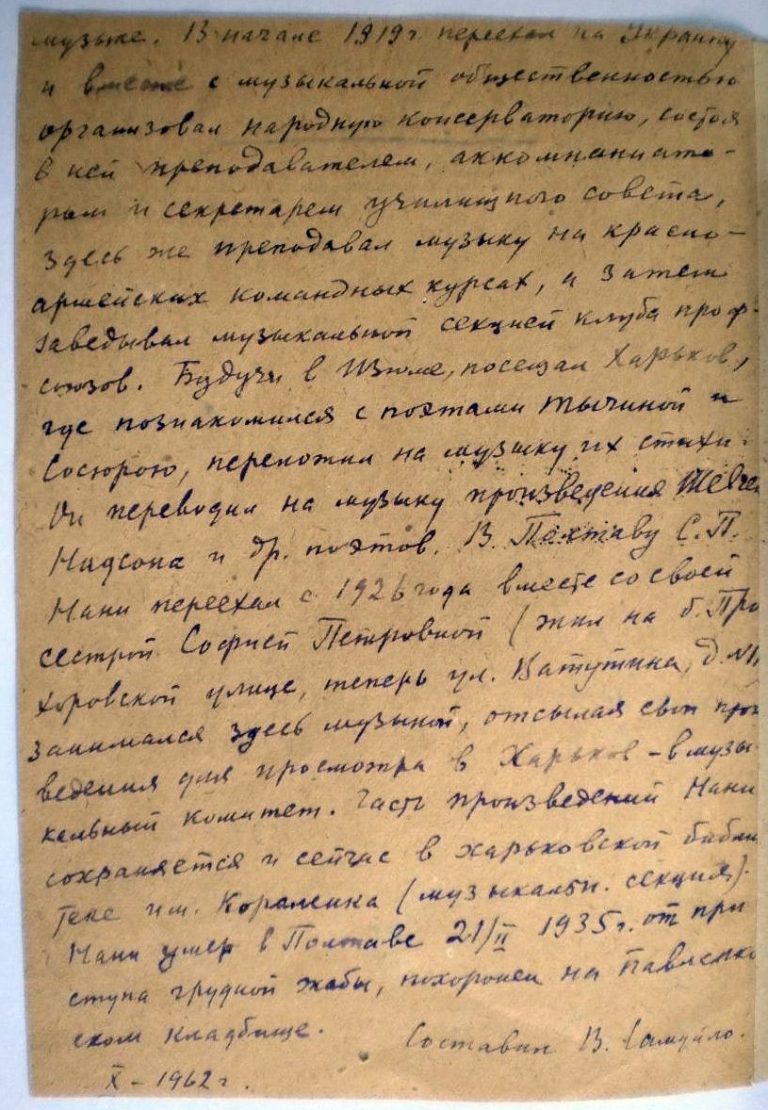 музыке. В начале 1919 г переехал на Украину
и вместе с музыкальной общественностью
организовал народную консерваторию, состоя
в ней преподавателем, аккомпаниато-
ром и секретарем училищного совета,
здесь же преподавал музыку на красно-
армейских командных курсах, а затем
заведывал музыкальной секцией клуба проф-
союзов. Будучи в Изюме, посещал Харьков,
где познакомился с поэтами Тычиной и
Сосюрою, переложил на музыку их стихи.
Он переводил на музыку произведения Шевче
Надсона и др. поэтов. В Полтаву С.П.
Нани переехал с 1926 года вместе со своей
сестрой Софией Петровной (жил на б. Про
хоровской улице, теперь ул. Ватутина, д. №
Занимался здесь музыкой, отсылая свои прои
ведения для просмотра в Харьков – в музы
кальный комитет. Часть произведений Нани
сохраняется и сейчас в харьковской библи
теке им. Короленка (музыкальн. секция).
Нани умер в Полтаве 21/II 1935 г. от при
ступа грудной жабы, похоронен на Павленко
ском кладбище. Составил В. Самуйло.
X – 1962 г.